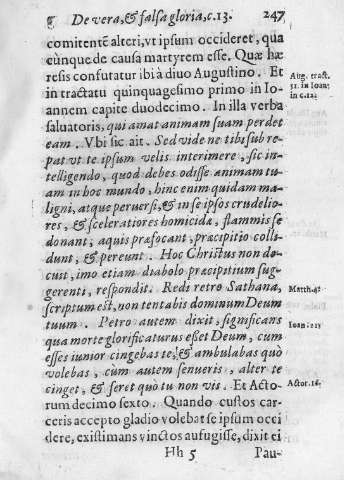 ¶ De vera, & falsa gloria, c. 13. 247
comitentē alteri, vt ipsum occideret, qua
cūnque de causa martyrem esse. Quæ hæ
resis confutatur ibi à diuo Augustino. Et
in tractatu quinquagesimo primo in Io-
annem capite duodecimo. In illa verba
saluatoris, qui amat animam suam perdet
eam. Vbi sic ait. Sed vide ne tibi sub re-
pat vt te ipsum velis interimere, sic in-
telligendo, quod debes odisse animam tu-
am in hoc mundo, hinc enim quidam ma-
ligni, atque peruersi, & in se ipsos crudelio-
res, & sceleratiores homicidæ, flammis se
donant, aquis præfocant, præcipitio colli
dunt, & pereunt. Hoc Christus non do-
cuit, imo etiam diabolo præcipitium sug-
gerenti, respondit. Redi retro Sathana,
scriptum est, non tentabis dominum Deum
tuum. Petro autem dixit, significans
qua morte glorificaturus esset Deum, cum
esses iunior cingebas te, & ambulabas quò
volebas, cùm autem senueris, alter te
cinget, & feret quò tu non vis. Et Acto-
rum decimo sexto. Quando custos car-
ceris accepto gladio volebat se ipsum occi
dere, existimans vinctos aufugisse, dixit ei
Hh 5 Pau-
Aug. tract.
51. in Ioan:
in c. 12.
Matth. 4.
Ioan. 21.
Actor. 16.